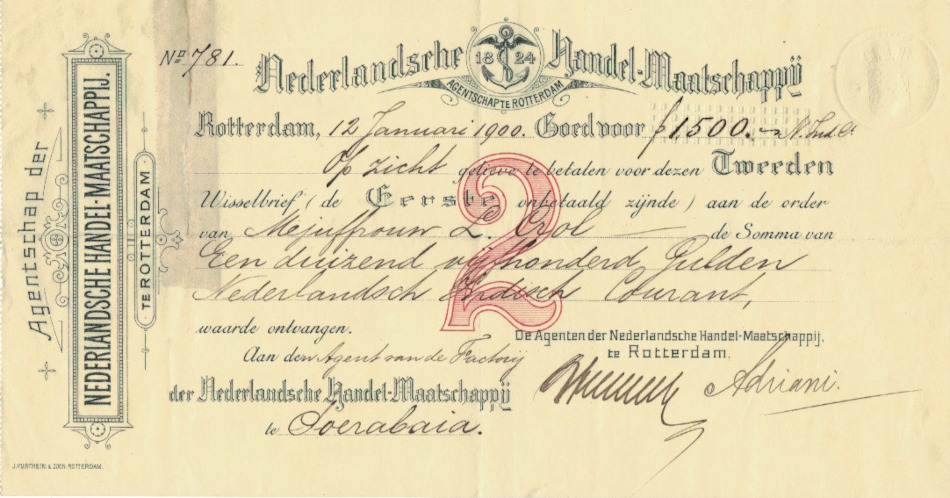 Agentschap der
NEDERLANDSCHE HANDEL-MAATSCHAPPIJ.
TE ROTTERDAM
No 781.
Nederlandsche Handel-Maatschappij
1824
AGENTSCHAP TE ROTTERDAM
Rotterdam, 12 Januari 1900. Goed voor ƒ 1500.- N. Ind Ct
Op zicht gelieve te betalen voor dezen Tweeden
Wisselbrief (de Eerste onbetaald zijnde) aan de order
van Mejuffrouw L. Crol de Somma van
Een duizend vijfhonderd Gulden
Nederlandsch Indisch Courant,
2
waarde ontvangen.
De Agenten der Nederlandsche Handel-Maatschappij,
te Rotterdam.
Aan den Agent van de Factorij
der Nederlandsche Handel-Maatschappij
te Soerabaia.
Adriani.